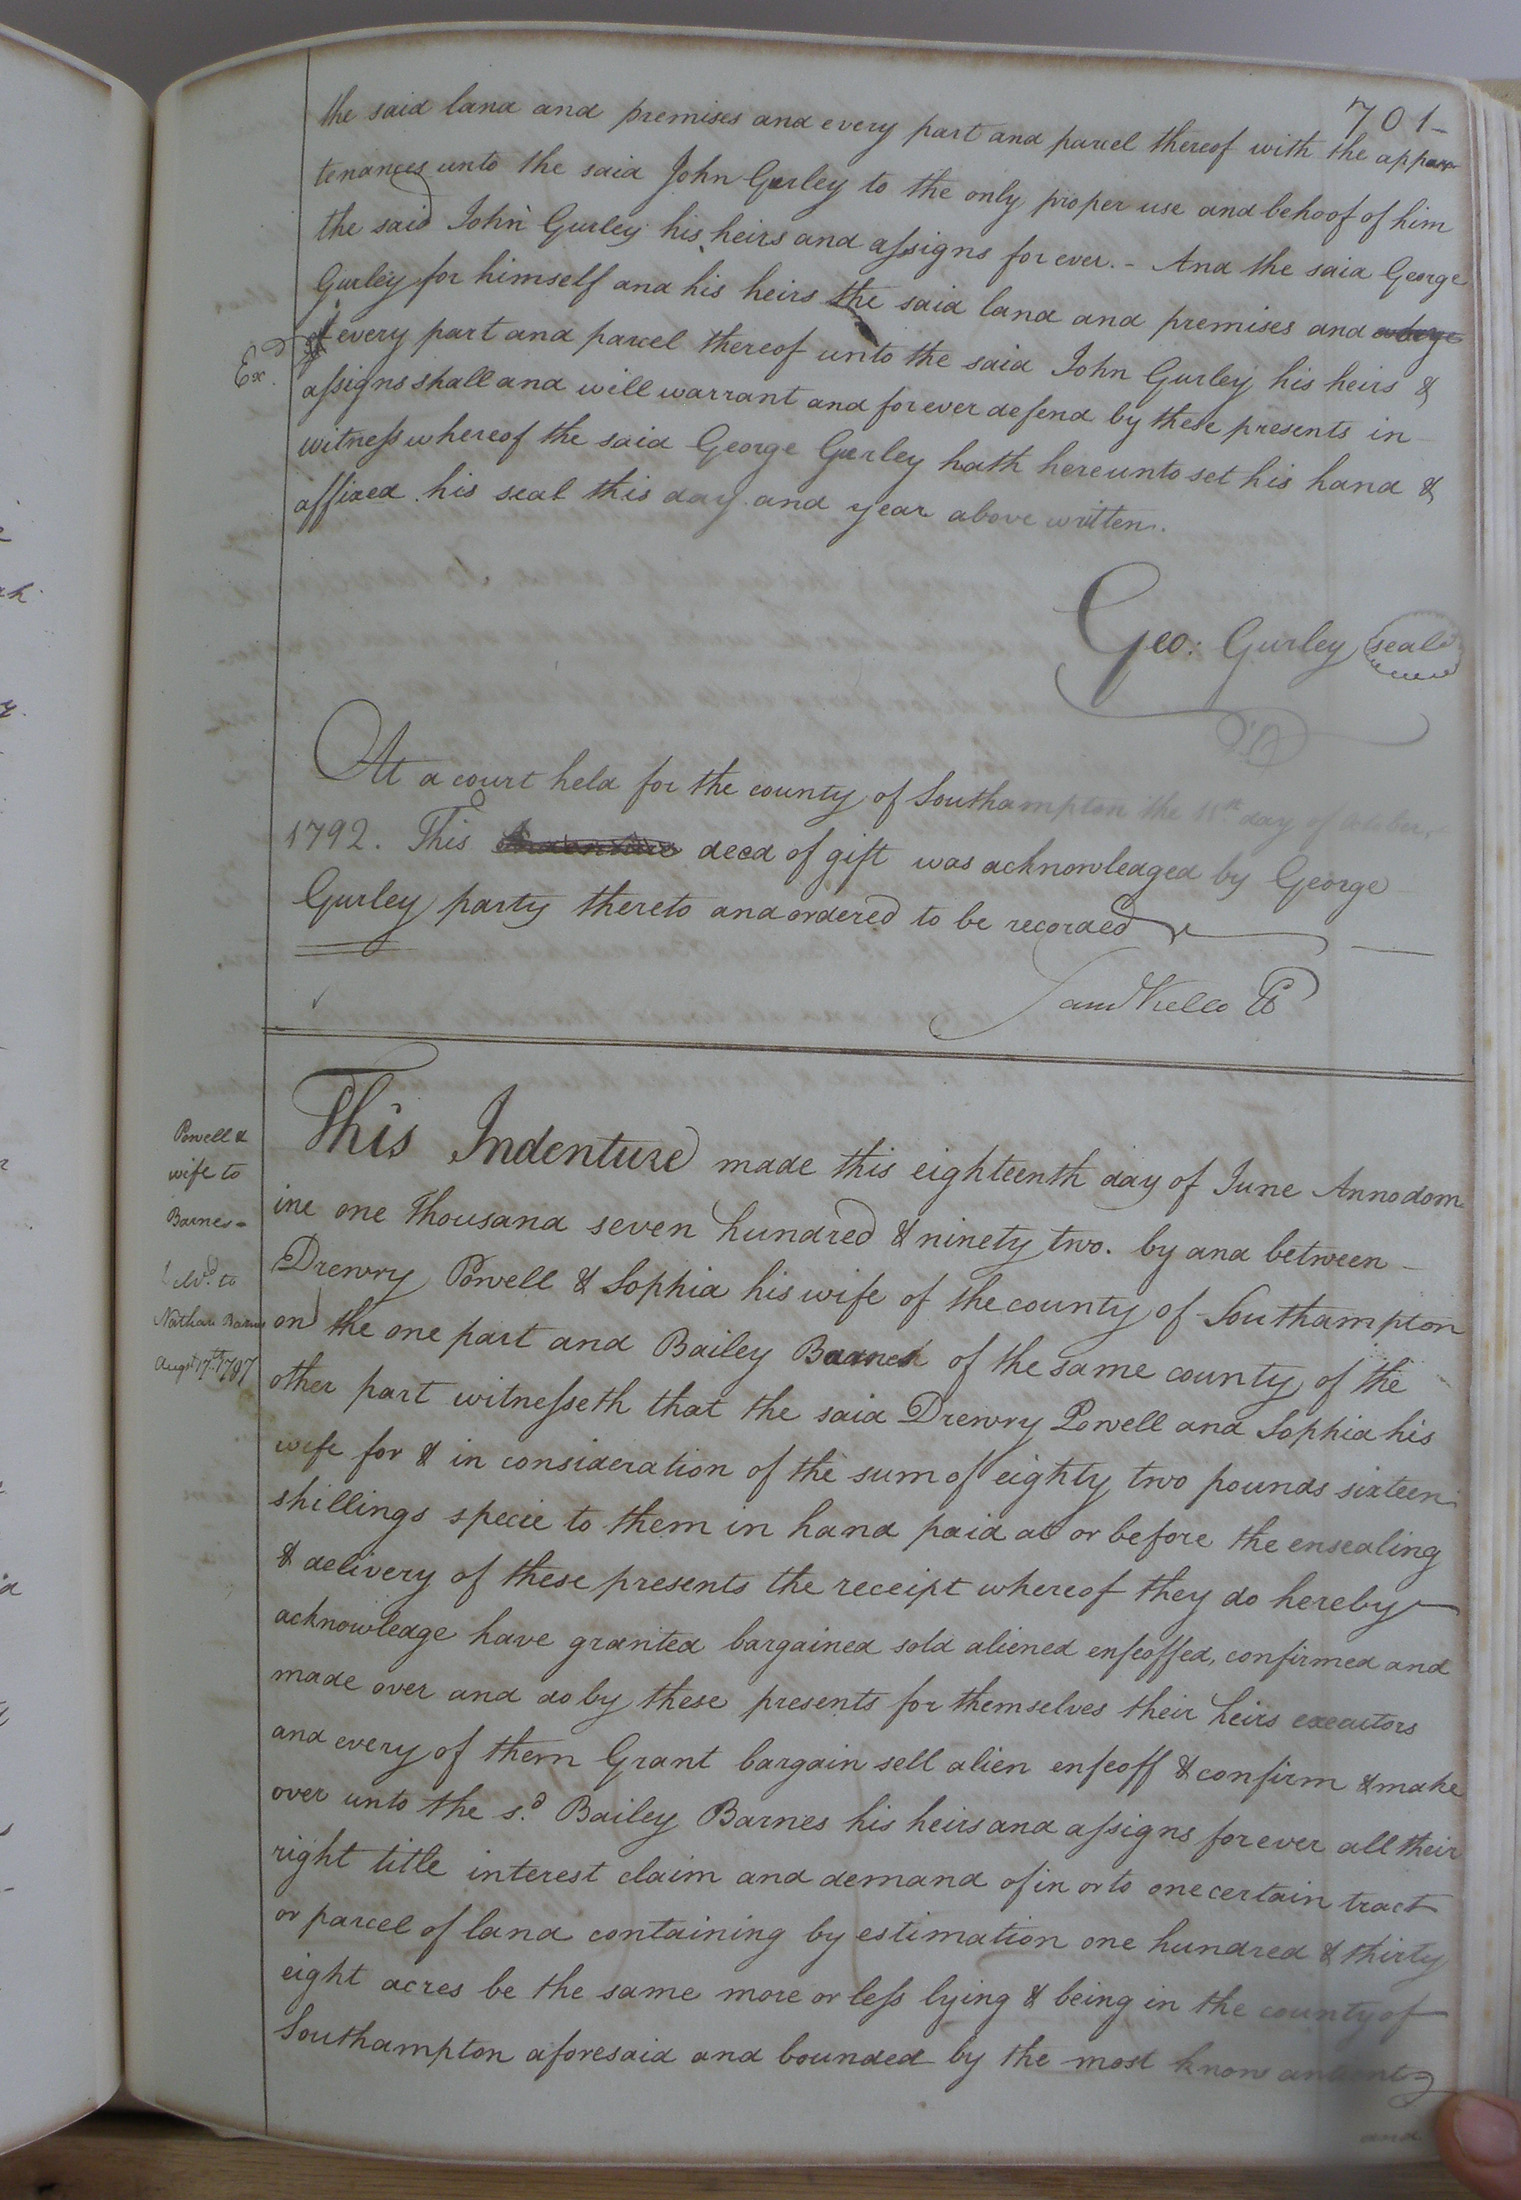 701-
the said land and premises and every part and parcel thereof with the appur
tenances unto the said John Gurley to the only proper use and behoof of him
the said John Gurley his heirs and assigns for ever. - And the said George
Gurley for himself and his heirs the said land and premises and
Ex.d
every part and parcel thereof unto the said John Gurley his heirs &
assigns shall and will warrant and forever defend by these presents in
witness whereof the said George Gurley hath hereunto set his hand &
affixed his seal this day and year above written.
Geo: Gurley seal
At a court held for the county of Southampton the 11th day of October,
1792. This Indenture deed of gift was acknowledged by George
Gurley party thereto and ordered to be recorded
Saml Kello
Powell &
wife to
Barnes-
Delvd. to
Nathan Barnes
Augst 17th 1797
This Indenture made this eighteenth day of June Annodom
ine one Thousand seven hundred & ninety two. by and between
Drewry Powell & Sophia his wife of the county of Southampton
on the one part and Bailey Barnes of the same county of the
other part witnesseth that the said Drewry Powell and Sophia his
wife for & in consideration of the sum of eighty two pounds sixteen
shillings specie to them in hand paid at or before the ensealing
& delivery of these presents the receipt whereof they do hereby
acknowledge have granted bargained sold aliened enfeoffed, confirmed and
made over and do by these presents for themselves their heirs executors
and every of them Grant bargain sell alien enfeoff & confirm & make
over unto the s.d Bailey Barnes his heirs and assigns forever all their
right title interest claim and demand of in or to one certain tract
or parcel of land containing by estimation one hundred & thirty
eight acres be the same more or less lying & being in the county of
Southampton aforesaid and bounded by the most known antient
and